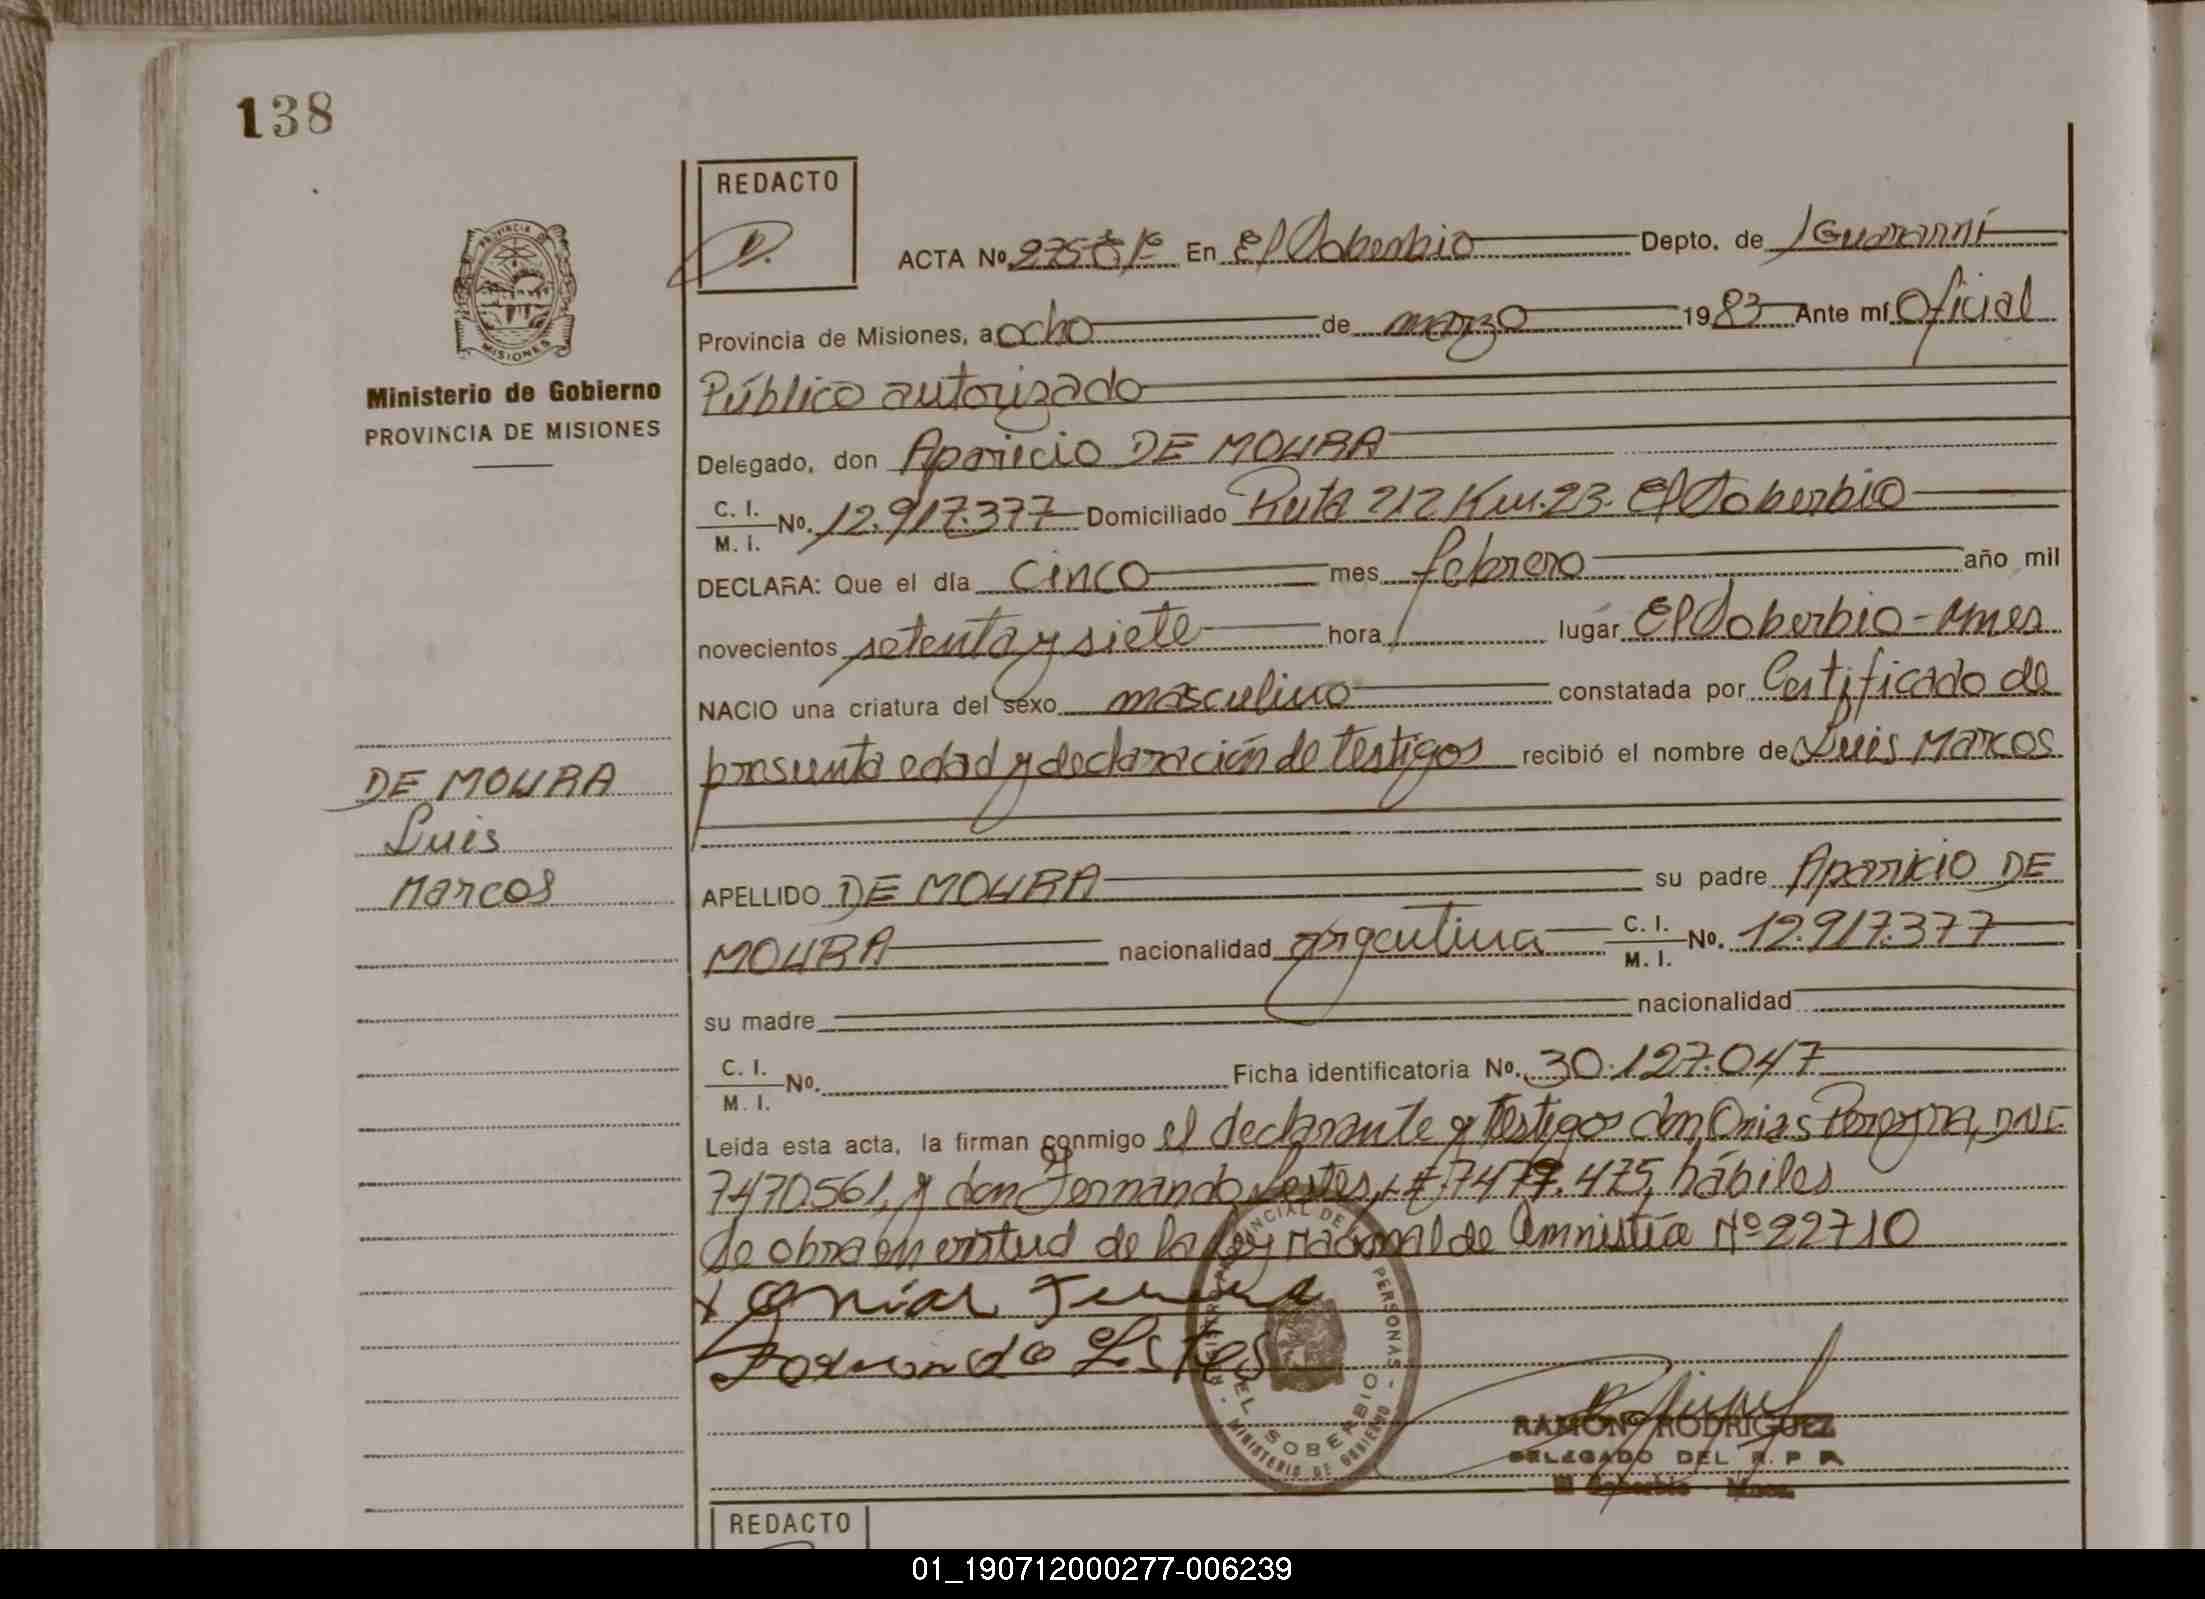 138
REDACTO
ACTA Nº En El Soberbio Depto. de Guaraní
Provincia de Misiones, a ocho de marzo 1983 Ante mí Oficial
Ministerio de Gobierno
PROVINCIA DE MISIONES
Público autorizado
Delegado, don Aparicio DE MOURA
C. I. M. I. No. 12.917.377 Domiciliado Ruta 212 Km. 23. El Soberbio
DECLARA: Que el día cinco mes febrero año mil
novecientos setenta y siete hora lugar El Soberbio - Mnes
NACIO una criatura del sexo masculino constatada por Certificado de
presunta edad y declaración de testigos recibió el nombre de Luis Marcos
DE MOURA
Luis
Marcos
APELLIDO DE MOURA su padre Aparicio DE
MOURA nacionalidad argentina C. I. M. I. No. 12.917.377
su madre nacionalidad
C. I. M. I. No. Ficha identificatoria No. 30.127.047
Leída esta acta, la firman conmigo el declarante y testigos don Onias Pereyra, DNI.
7470561, y don Fernando Lestes, 7477.475, hábiles
de obra en virtud de la Ley Nacional de Amnistía Nº 22710
Fernando Lestes
REGISTRO PROVINCIAL DE PERSONAS
EL SOBERBIO
MINISTERIO DE GOBIERNO
RAMON RODRIGUEZ
DELEGADO DEL R. P. P.
El Soberbio - Mnes.
REDACTO
01_190712000277-006239